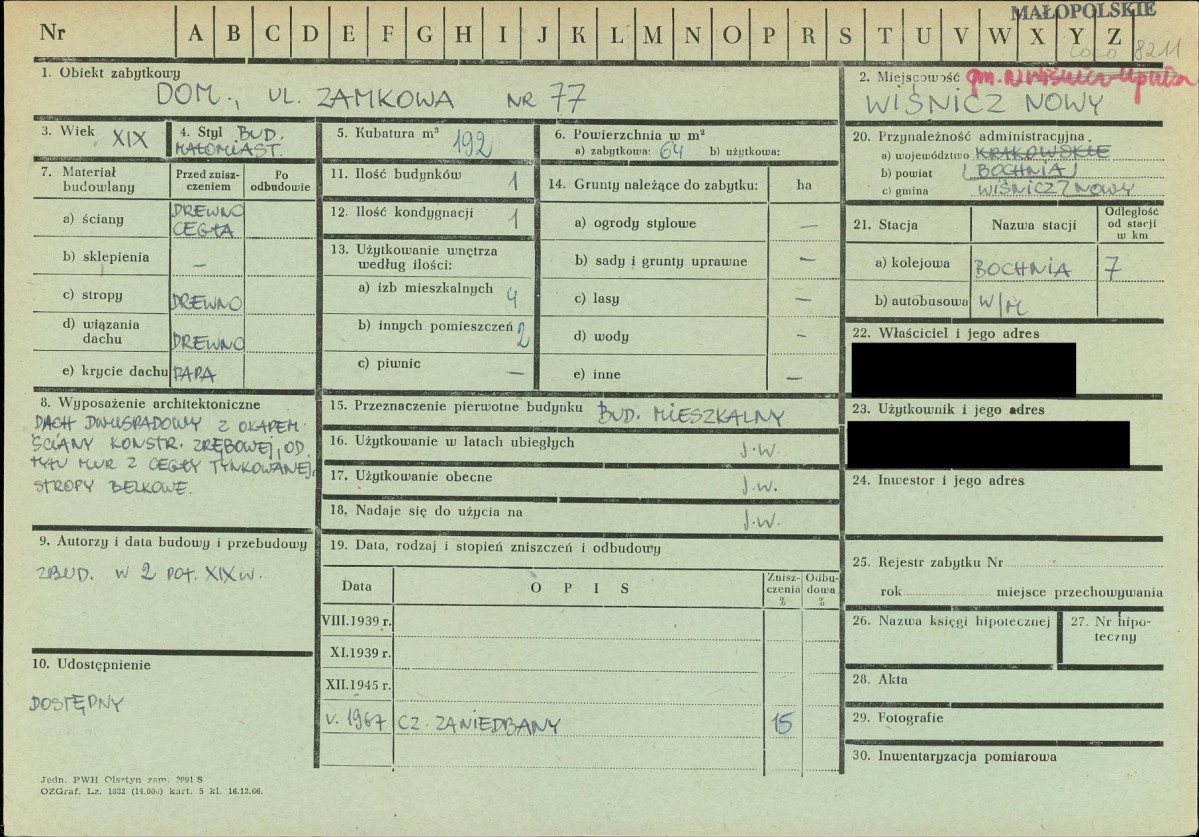 MAŁOPOLSKIE
Nr A B C D E F G H I J K L M N O P R S T U V W X Y Z
8211
1. Obiekt zabytkowy
DOM., UL. ZAMKOWA NR 77
2. Miejscowość gm. N. Wiśnicz
WIŚNICZ NOWY
3. Wiek XIX
4. Styl BUD.
MAŁOMIAST.
5. Kubatura m³ 192
6. Powierzchnia w m²
a) zabytkowa: 64 b) użytkowa:
20. Przynależność administracyjna
a) województwo KRAKOWSKIE
b) powiat (BOCHNIA)
c) gmina WIŚNICZ NOWY
7. Materiał budowlany
Przed znisz-
czeniem
Po
odbudowie
a) ściany DREWNO
CEGŁA
b) sklepienia –
c) stropy DREWNO
d) wiązania
dachu DREWNO
e) krycie dachu PAPA
11. Ilość budynków 1
12. Ilość kondygnacji 1
13. Użytkowanie wnętrza
według ilości:
a) izb mieszkalnych 4
b) innych pomieszczeń 2
c) piwnic –
14. Grunty należące do zabytku: ha
a) ogrody stylowe –
b) sady i grunty uprawne –
c) lasy –
d) wody –
e) inne –
21. Stacja Nazwa stacji Odległość
od stacji
w km
a) kolejowa BOCHNIA 7
b) autobusowa W/M
22. Właściciel i jego adres
23. Użytkownik i jego adres
24. Inwestor i jego adres
8. Wyposażenie architektoniczne
DACH DWUSPADOWY Z OKAPEM.
ŚCIANY KONSTR. ZRĘBOWEJ, OD
TYŁU MUR Z CEGŁY TYNKOWANEJ.
STROPY BELKOWE.
15. Przeznaczenie pierwotne budynku BUD. MIESZKALNY
16. Użytkowanie w latach ubiegłych J.W.
17. Użytkowanie obecne J.W.
18. Nadaje się do użycia na J.W.
9. Autorzy i data budowy i przebudowy
ZBUD. W 2 POŁ. XIX W.
10. Udostępnienie
DOSTĘPNY
19. Data, rodzaj i stopień zniszczeń i odbudowy
Data O P I S Znisz-
czenia
% Odbu-
dowa
%
VIII.1939 r.
XI.1939 r.
XII.1945 r.
V. 1967 CZ. ZANIEDBANY 15
25. Rejestr zabytku Nr
rok miejsce przechowywania
26. Nazwa księgi hipotecznej
27. Nr hipo-
teczny
28. Akta
29. Fotografie
30. Inwentaryzacja pomiarowa
Jedn. PWH Olsztyn zam. 2991 S
OZGraf. Lz. 1832 (14.000) kart. 5 kl. 16.12.66.